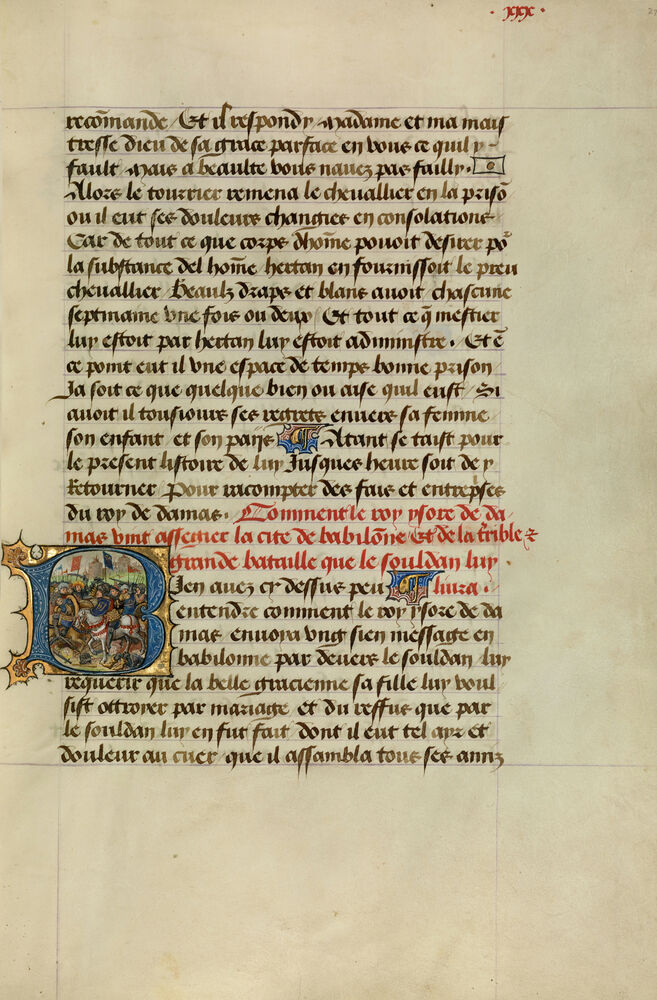 .xxx.
27
recōmande / Et il respondy Madame et ma mais
tresse dieu de sa grace parface en vous ce quil y
fault Mais a beaulte vous nauez pas failly.
Alors le tourrier remena le cheuallier en la prisō
ou il eut ses douleurs changies en consolations
Car de tout ce que corps dhōme pouoit desirer po᷑
la substance del hōme hertan en fournissoit le preu
cheuallier / Beaulz draps et blans auoit chascune
sepmaine vne fois ou deux / Et tout ce q̄ mestier
luy estoit par hertan luy estoit administre. Et ē
ce point eut il vne espace de temps bonne prison
Ja soit ce que quelque bien ou aise quil eust / Si
auoit il tousiours ses regrets enuers sa femme
son enfant et son paijs Atant se taist pour
le present listoire de luy Jusques heure soit de y
Retourner Pour racompter des fais et entrepses
du roy de damas. Comment le roy ysore de da
mas vint assegier la cite de babilōne Et de la t'rible
grande bataille que le souldan luy
Bien auez cy dessus peu liura.
entendre comment le roy ysore de da
mas enuoya vng sien message en
babilonne par deuers le souldan luy
requerir que la belle gracienne sa fille luy voul
sist ottroyer par mariage et du reffus que par
le souldan luy en fut fait dont il eut tel ayr et
douleur au cuer / que il assambla tous ses annz